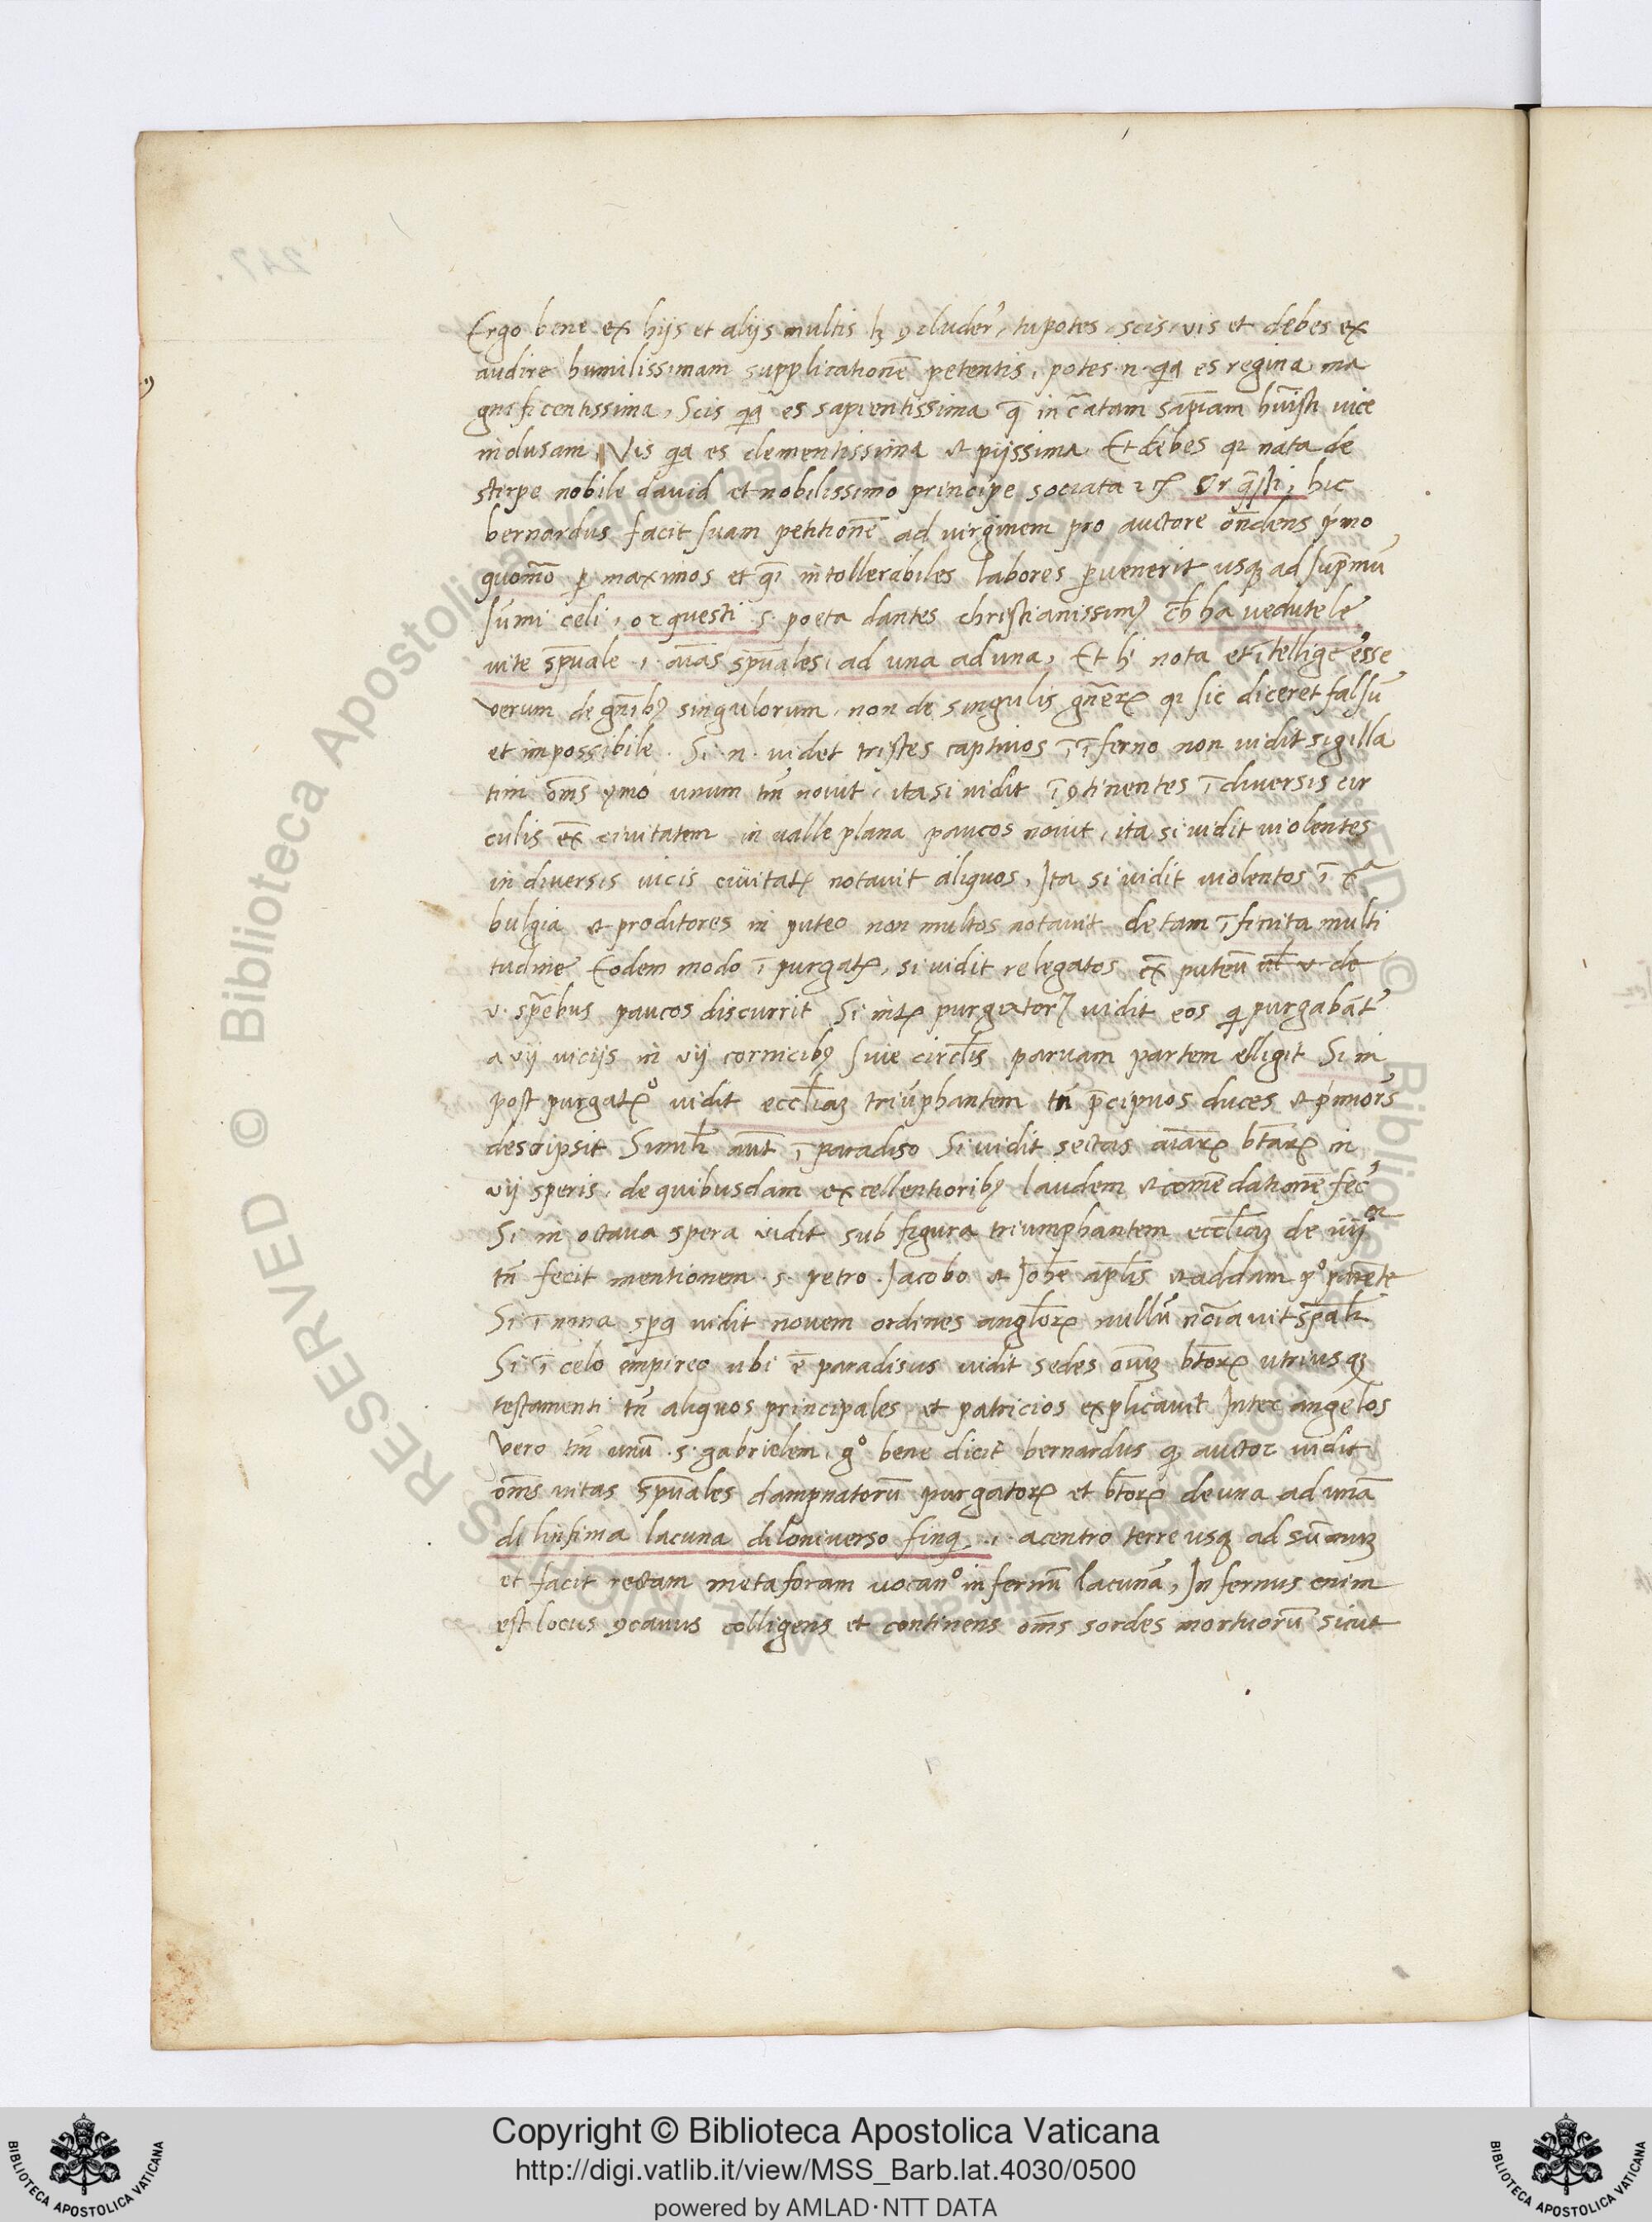 247.
Ergo bene ex hijs et alijs multis ꝯcluder̃, tu potes, scis, vis et debes ex
audire humilissimam supplicationẽ petentis, potes .n. qia es regina ma
gnificentissima, Scis qia es sapientissima q̃ incr̃atam sap̃iam hũisti vice
inclusam, Vis qia es clementissima et pijssima. Et debes qr nata de
stirpe nobile david et nobilissimo principe sociata Or q̃sti, hic
bernardus facit suam petitionẽ ad virginem pro auctore oñdens pͥmo
quom̃o ꝑ maximos et q̃i intollerabiles labores ꝑvenerit usqꝫ ad sup̃mũ
sũmi celi, or questi .s. poeta dantes christianissimꝰ ch̃ ha vedute le
vite sp̃uale .i. aĩas sp̃uales, ad una ad una, Et hͥ nota et ĩtellige esse
verum de gñibꝫ singulorum, non de singulis gñerꝝ qr sic diceret falsũ
et impossibile. Si .n. videt tristes captivos ĩ ĩferno non vidit sigilla
tim om̃s ymo unum tm̃ novit, ita si vidit ĩꝯtinentes ĩ diversis cir
culis ex̃ civitatem in valle plana paucos novit, ita si vidit violentes
in diversis vicis civitatꝭ notavit aliquos, Ita si vidit violentos ĩ xᵃ
bulgia et proditores in puteo non multos notavit de tam ĩfinita multi
tudine Eodem modo ĩ purgatꝭ, si vidit relegatos ex̃ puteũ v. de
v. sp̃ebus paucos discurrit Si intꝭ purgatorꝫ vidit eos qi purgabãtꝰ
a vij vicijs in vij cornicibꝫ sive circl̃is parvam partem elligit Si in
post purgatꝭᵒ vidit eccl̃iaꝫ triũphantem tñ p̃cipuos duces et pͥmorẽs
descripsit Simil̃r aũt ĩ paradiso Si vidit sectas aĩarꝝ bt̃arꝝ in
vij speris, de quibusdam excellentioribꝫ laudem et comẽdationẽ fecͭ
Si in octava spera vidit sub figura triumphantem eccl̃iaꝫ de iiijᵒʳ
tñ fecit mentionem .s. petro . Jacobo et Joh̃e apl̃is et addam pͦ parẽte
Si ĩ nona spa vidit novem ordines angl̃orꝝ nullũ noĩavit sp̃al̃r
Si ĩ celo empireo ubi ẽ paradisus vidit sedes oĩuꝫ bt̃orꝝ utriusqꝫ
testamenti tñ aliquos principales et patricios explicavit Inter angelos
vero tm̃ unũ .s. gabrielem, gͦ bene dicit bernardus qꝫ auctor vidit
om̃s vitas sp̃uales dampnatorũ purgatorꝝ et bt̃orꝝ de una ad unã
di linfima lacuna di loniverso finq .i. a centro terre usqꝫ ad sũmuꝫ
et facit rectam metaforam vocanͦ infernũ lacunã, Infernus enim
est locus ꝯcavus colligens et continens om̃s sordes mortuorũ sicut
© Biblioteca Apostolica Vaticana
RESERVED
Copyright © Biblioteca Apostolica Vaticana
http://digi.vatlib.it/view/MSS_Barb.lat.4030/0500
powered by AMLAD·NTT DATA
BIBLIOTECA APOSTOLICA VATICANA
BIBLIOTECA APOSTOLICA VATICANA